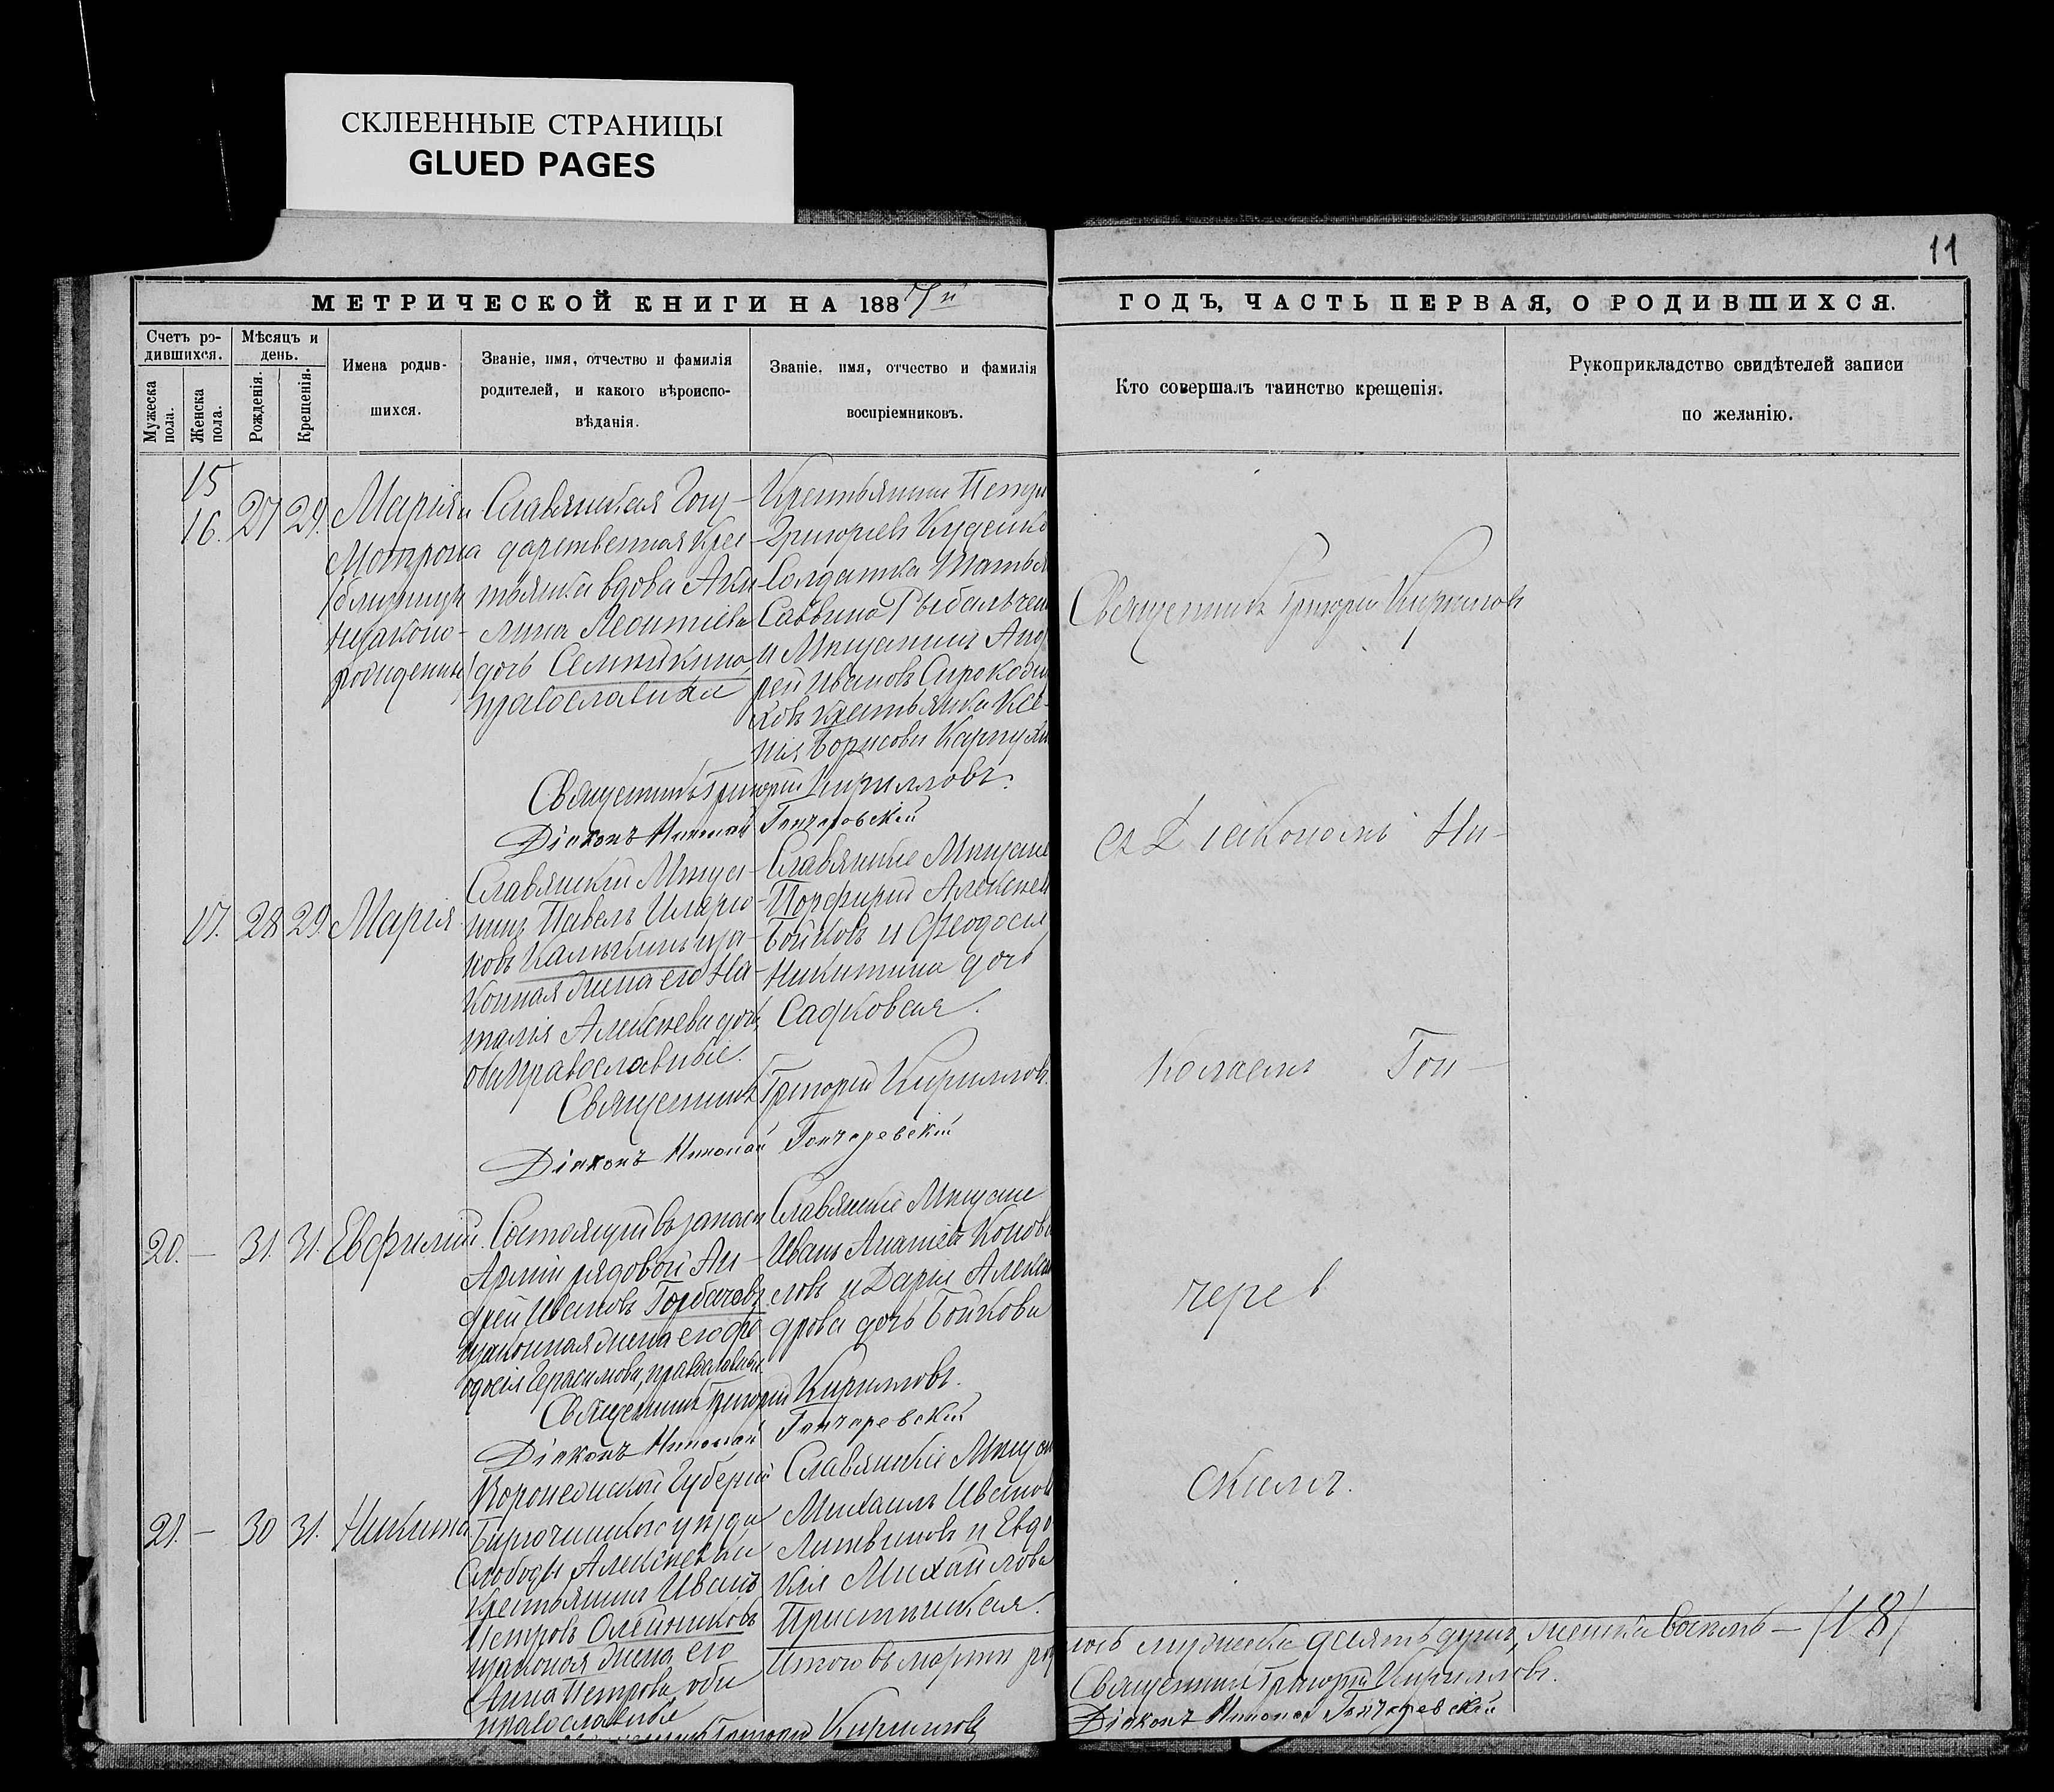 СКЛЕЕННЫЕ СТРАНИЦЫ
GLUED PAGES
11
МЕТРИЧЕСКОЙ КНИГИ НА 1887й
ГОДЪ, ЧАСТЬ ПЕРВАЯ, О РОДИВШИХСЯ.
Счетъ ро-
дившихся.
Мужеска пола.
Женска пола.
Мѣсяцъ и
день.
Рожденія.
Крещенія.
Имена родив-
шихся.
Званіе, имя, отчество и фамилія
родителей, и какого вѣроиспо-
вѣданія.
Званіе, имя, отчество и фамилія
воспріемниковъ.
Кто совершалъ таинство крещенія.
Рукоприкладство свидѣтелей записи
по желанію.
15
16. 27 29.
Марія и
Мотрона
близнецы
незаконо-
рожденны
Славянская Госу-
дарственная Крес-
тьянка вдова Аки-
лина Леонтіева
дочь Семикина
православная
Крестьянинъ Петръ
Григорьевъ
Солдатка Татья
Саввина Рыбальчен
и Мѣщанинъ Анд
рей Ивановъ
ковъ крестьянка Ксе-
нія Борисова
Священникъ Григорій Кирилловъ.
Діаконъ Николай Гончаревскій
17. 28 29. Марія
Славянскій Мѣща-
нинъ Павелъ Иларіо-
новъ за-
конная жена его На-
талія Алексѣева дочь
оба православные.
Славянскіе Мѣщане
Порфирій Алексѣев
Бойковъ и Феодосія
Никитина дочь
Садковская.
Священникъ Григорій Кирилловъ.
Діаконъ Николай Гончаревскій
20. — 31. 31. Евфимій.
Состоящій въ запасѣ
Арміи рядовой Ан-
дрей Ивановъ Горбачевъ,
законная жена его Фе
одосія Герасимова, православные
Славянскіе Мѣщане
Иванъ
ловъ и Дарья Алексан
дрова дочь Бойкова
Священникъ Григорій Кирилловъ.
Діаконъ Николай Гончаревскій
21. — 30 31. Никита
Воронежской Губерніи
Бирюченскаго уѣзда
Слободы Алексѣевки
Крестьянинъ Иванъ
Петровъ Олейниковъ
законая жена его
Анна Петрова, оба
православные
Славянскіе Мѣщан
Михаилъ Иванов
Литвиновъ и Евдо
кія Михайлова
Григорій Кирилловъ
Священникъ Григорій Кирилловъ
съ Діакономъ Ни-
колаемъ Гон-
чарев
скимъ.
Итого въ мартѣ род
лось мужеска десять душъ, женска восемь — (18)
Священникъ Григорій Кирилловъ.
Діаконъ Николай Гончаревскій